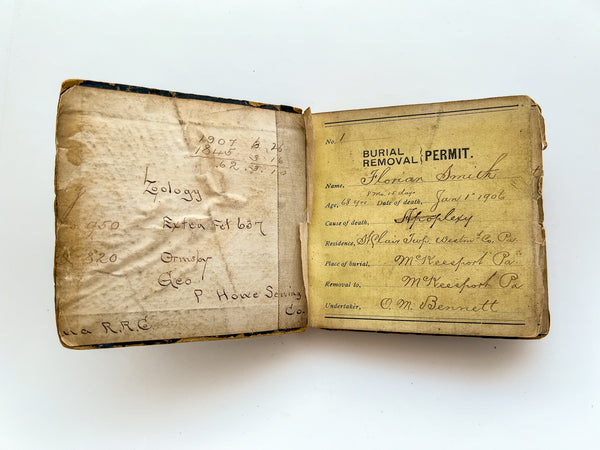 1907 6 26
1845 3 16
62 3 10
Zoology
950 Extra Fct 637
320 Ormsby
Geo
P Howe Sewing
Co
R.R.C
No. 1
BURIAL
REMOVAL } PERMIT.
Name, Florian Smith
8 Mo 15 days
Age, 68 yrs Date of death, Jan 1st 1906
Cause of death, Apoplexy
Residence, St Clair Twp. Westm'd Co. Pa.
Place of burial, McKeesport Pa
Removal to, McKeesport Pa
Undertaker, O. M. Bennett